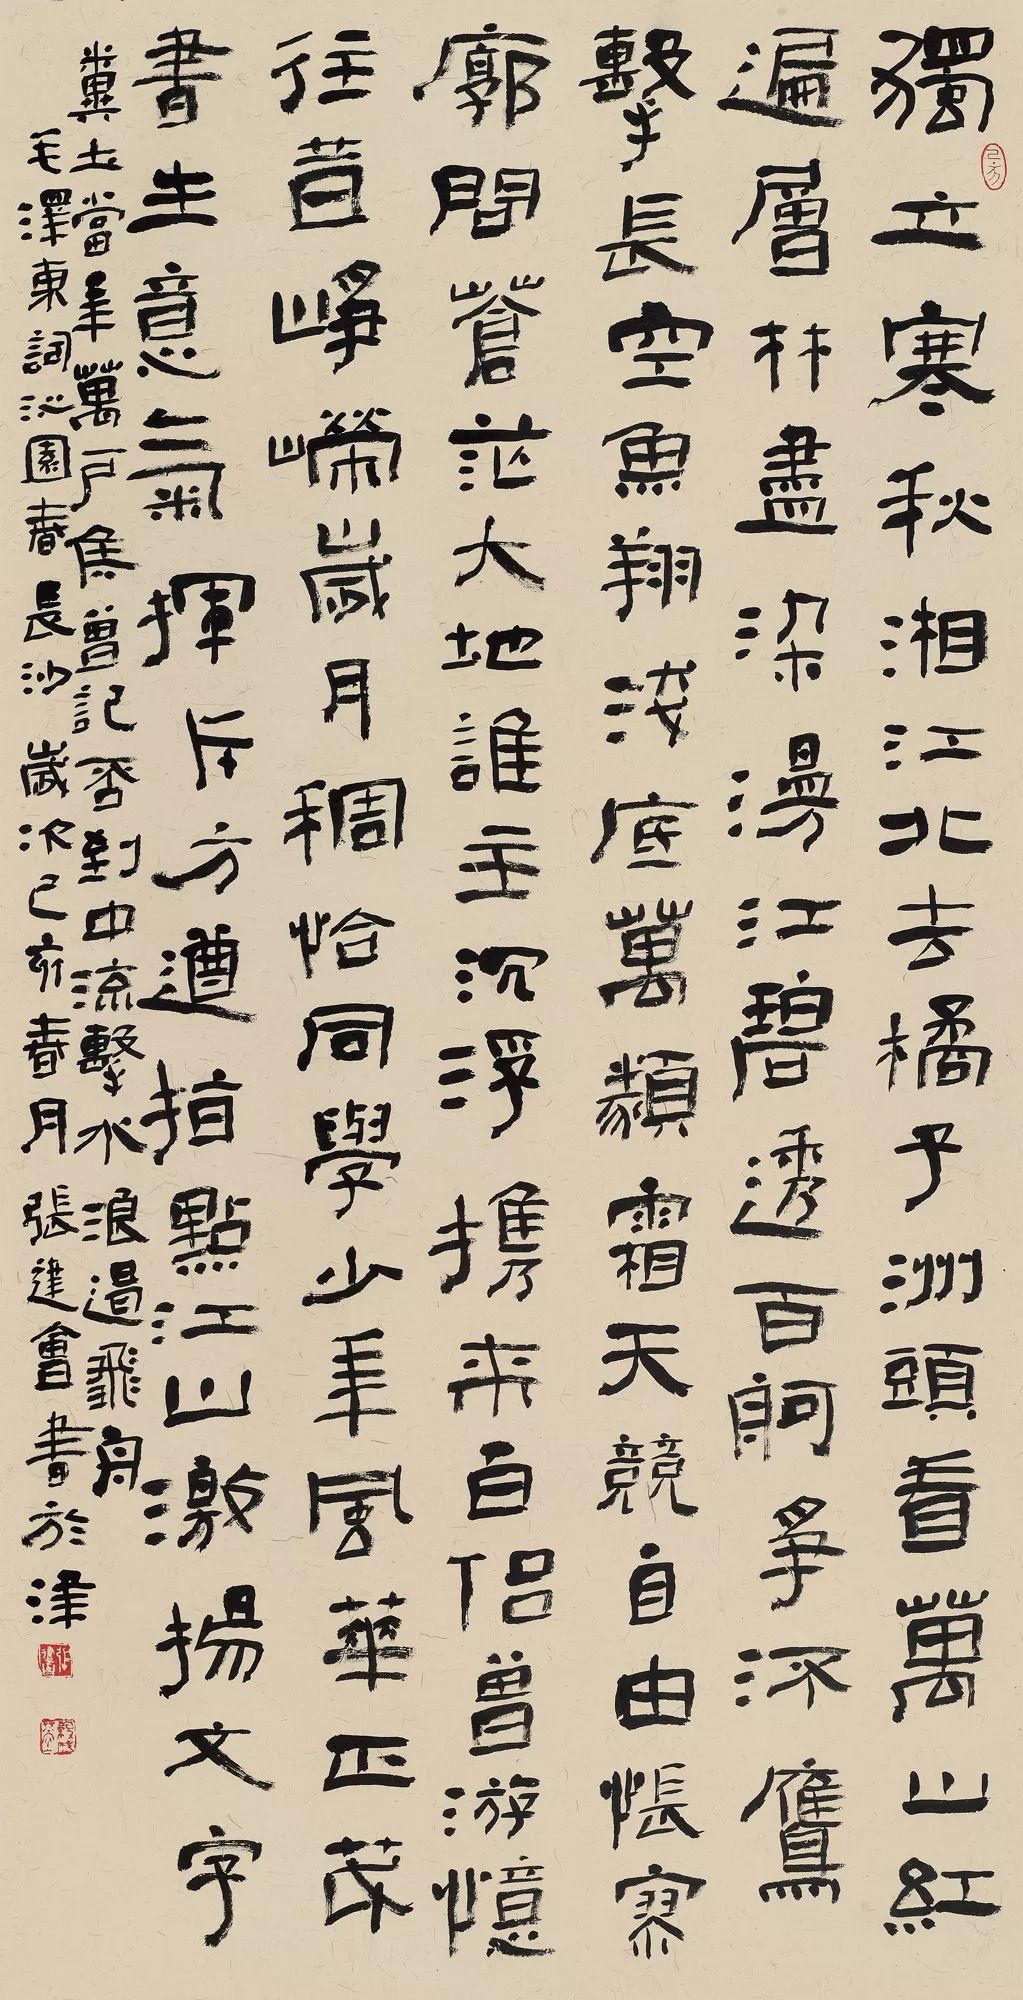 獨立寒秋湘江北去橘子洲頭看萬山紅
遍層林盡染漫江碧透百舸爭流鷹
擊長空魚翔淺底萬類霜天競自由悵寥
廓問蒼茫大地誰主沉浮携來百侶曾游憶
往昔崢嶸歲月稠恰同學少年風華正茂
書生意氣揮斥方遒指點江山激揚文字
糞土當年萬戶侯曾記否到中流擊水浪遏飛舟
毛澤東詞沁園春長沙歲次己亥春月張建會書於津